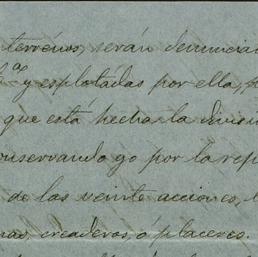 terrenos, serán denuncia
y esplotadas por ella,
que está hecha la divisi
onservando yo por la rep
de las veinte acciones,
nas, creaderos, ó placeres.